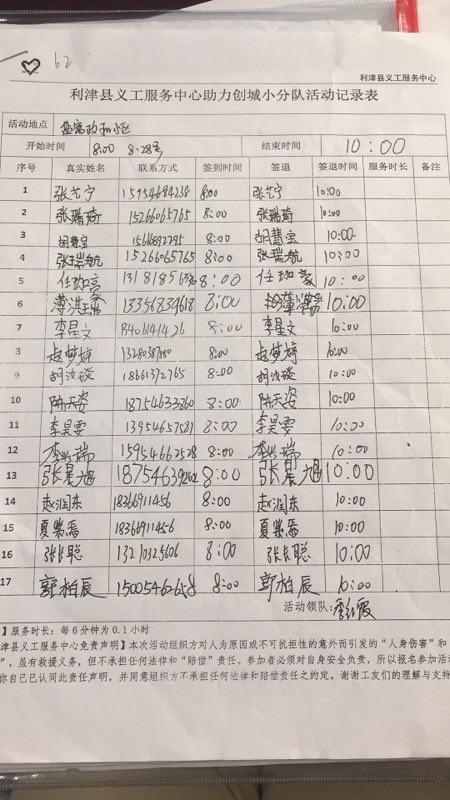 62
利津县义工服务中心
利津县义工服务中心助力创城小分队活动记录表
活动地点
开始时间 8:00 8.28号 结束时间 10:00
序号 真实姓名 联系方式 签到时间 签退 签退时间 服务时长 备注
1 张艺宁 15954684238 8:00 张艺宁 10:00
2 张瑞琦 15266065765 8:00 张瑞琦 10:00
3 胡慧宝 8:00 胡慧宝 10:00
4 张瑞航 15266065765 8:00 张瑞航 10:00
5 8:00 10:00
6 13356834618 8:00 10:00
7 李星文 18406141426 8:00 李星文 10:00
8 赵梦婷 8:00 赵梦婷 10:00
9 胡汝琰 18661372765 8:00 胡汝琰 10:00
10 陈天姿 18754633860 8:00 陈天姿 10:00
11 李昊雯 13954657281 8:00 李昊雯 10:00
12 李兴瑞 15954662528 8:00 李兴瑞 10:00
13 张晨旭 8:00 张晨旭 10:00
14 赵润东 18366911456 8:00 赵润东 10:00
15 夏紫焉 18366911456 8:00 夏紫焉 10:00
16 张长聪 13210325606 8:00 张长聪 10:00
17 郭柏辰 15005462658 8:00 郭柏辰 10:00
活动领队:
】服务时长：每6分钟为0.1小时
津县义工服务中心免责声明】本次活动组织方对人为原因或不可抗拒性的意外而引发的“人身伤害”和
”，虽有救援义务，但不承担任何法律和“赔偿”责任。参加者必须对自身安全负责，所以报名参加活
你自己已认同此责任声明，并同意组织方不承担任何法律和赔偿责任之约定。谢谢工友们的理解与支持